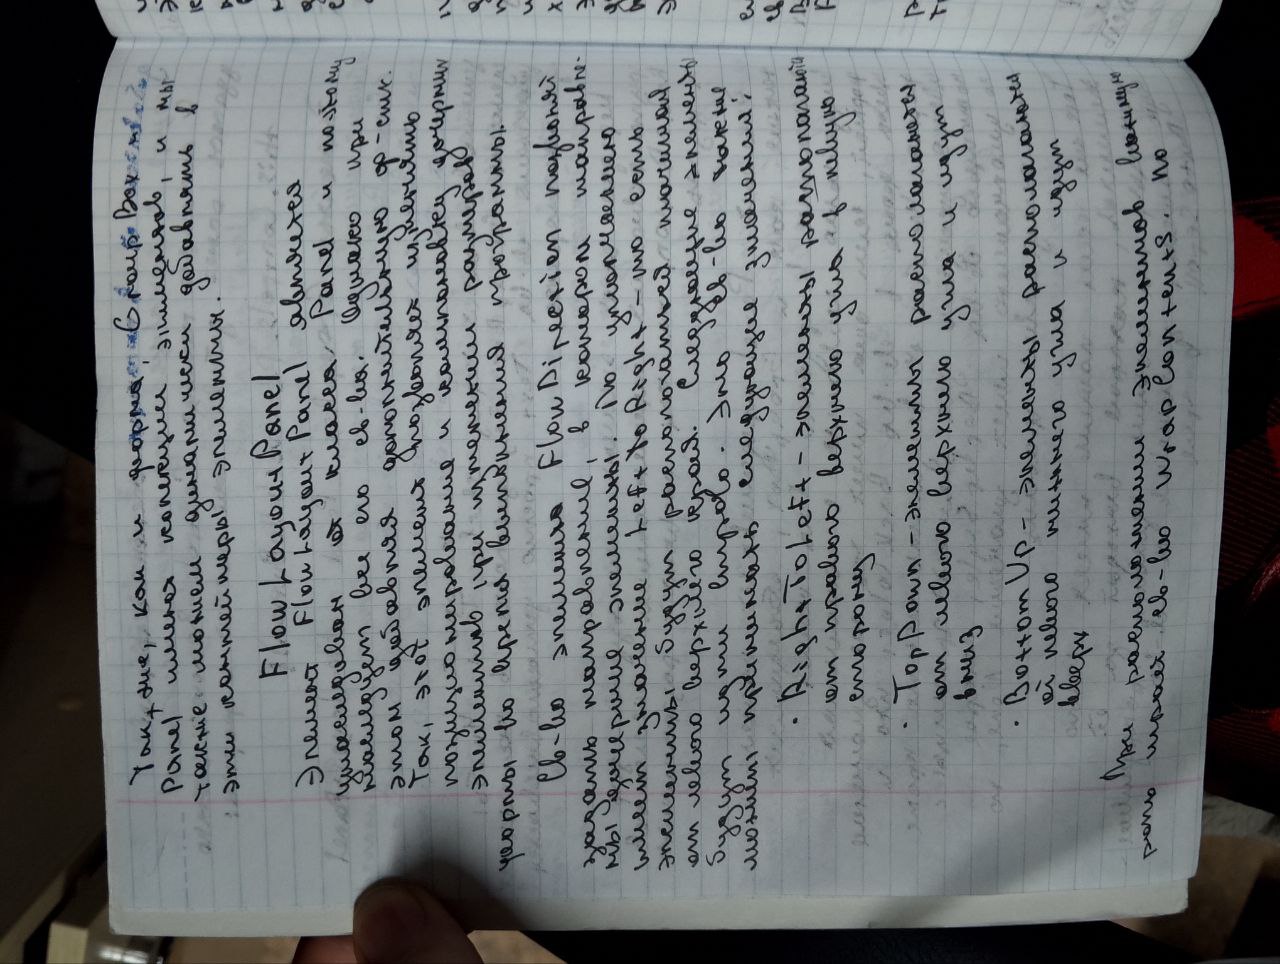 Так же, как и форма, GroupBox и
Panel имеют коллекции элементов, и мы
также можем динамически добавлять в
эти контейнеры элементы.
FlowLayoutPanel
Элемент FlowLayoutPanel является
унаследован от класса Panel и поэтому
наследует все его св-ва. Однако при
этом добавляя дополнительную ф-сть.
Так, этот элемент позволяет изменять
позиционирование и компоновку дочерних
элементов при изменении размеров
формы во время выполнения программы.
Св-во элемента FlowDirection позволяет
задать направление, в котором направле-
ны дочерние элементы. По умолчанию
имеет значение LeftToRight - то есть
элементы будут располагаться начиная
от левого верхнего края. Следующие элементы
будут идти вправо. Это св-во также
может принимать следующие значения:
• RightToLeft - элементы располагаются
от правого верхнего угла в левую
сторону
• TopDown - элементы располагаются
от левого верхнего угла и идут
вниз
• BottomUp - элементы располагаются
от левого нижнего угла и идут
вверх
При расположении элементов важную
роль играет св-во WrapContents. По